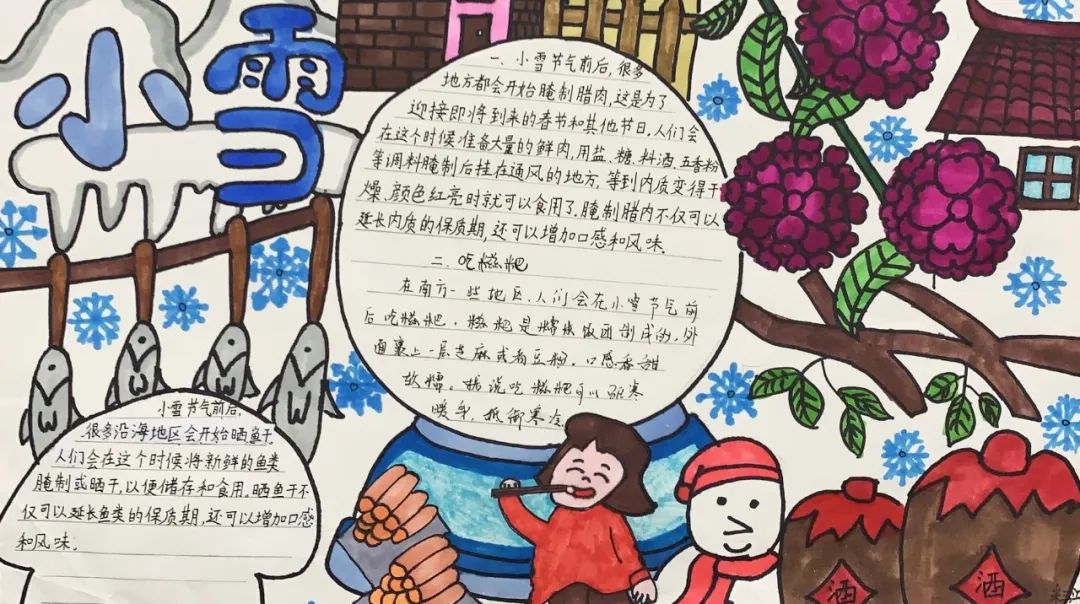 小雪
一、小雪节气前后,很多
地方都会开始腌制腊肉,这是为了
迎接即将到来的春节和其他节日,人们会
在这个时候准备大量的鲜肉,用盐、糖、料酒、五香粉
等调料腌制后挂在通风的地方,等到内质变得干
燥、颜色红亮时就可以食用了,腌制腊内不仅可以
延长内质的保质期,还可以增加口感和风味.
二、吃糍粑
在南方一些地区,人们会在小雪节气前
后吃糍粑,糍粑是糯米饭团制成的,外
面裹上一层芝麻或者豆粉,口感香甜
软糯。据说吃糍粑可以驱寒
暖身,抵御寒冷
小雪节气前后,
很多沿海地区会开始晒鱼干,
人们会在这个时候将新鲜的鱼类
腌制或晒干,以便储存和食用.晒鱼干不
仅可以延长鱼类的保质期,还可以增加口感
和风味.
酒
酒